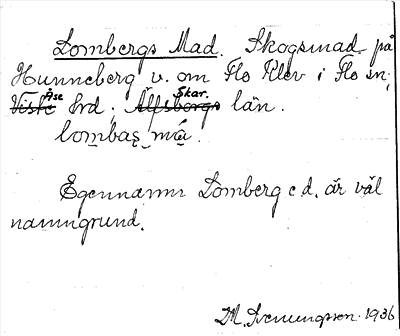 Lombergs Mad. Skogsmad på
Hunneberg v. om Flo Klev i Flo sn;
Åse Skar.
Viste hrd; Älfsborgs län.
lombas̨ má̱.
Egennamn Lomberg e d. är väl
namngrund.
M. Svenungsson. 1936